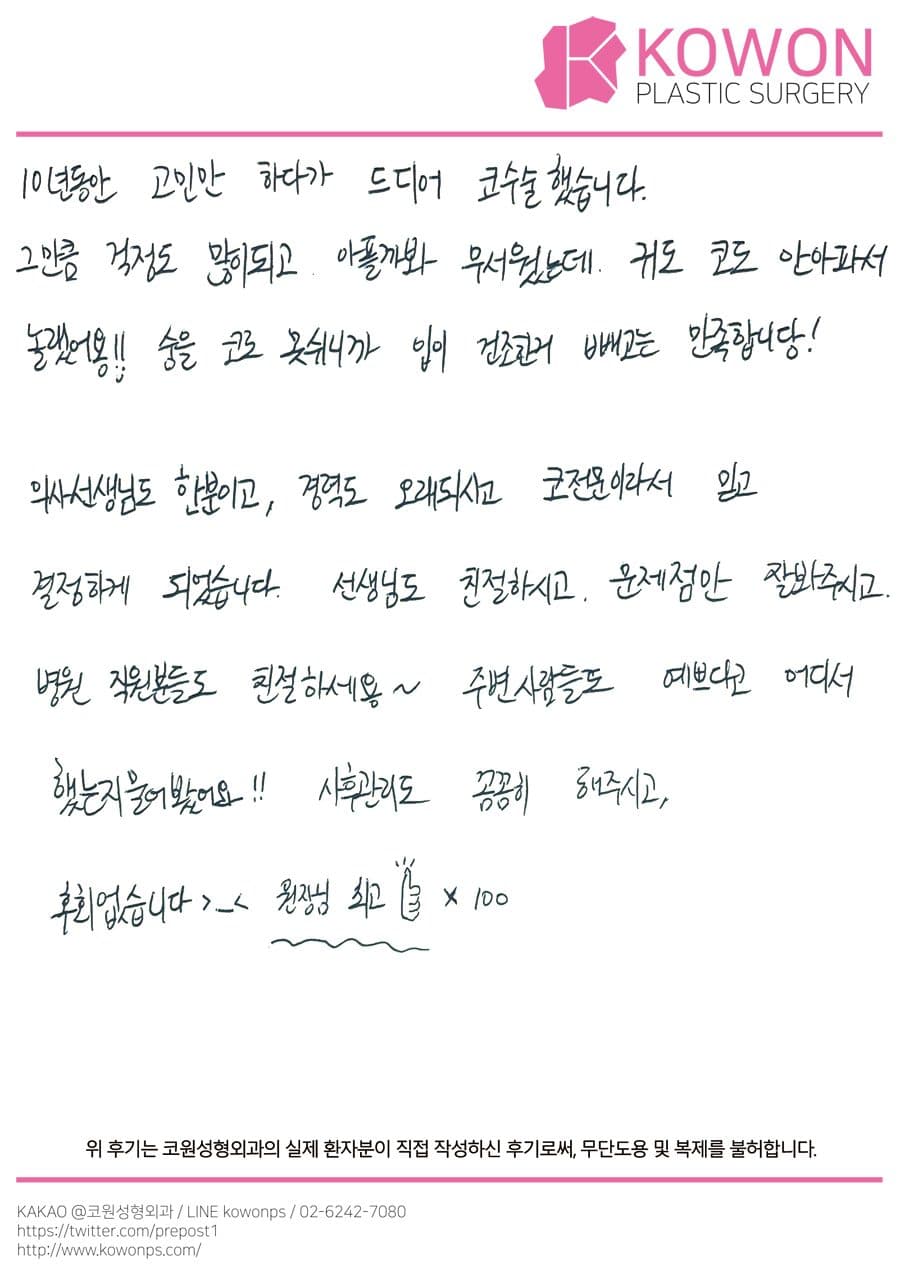 KOWON
PLASTIC SURGERY
10년동안 고민만 하다가 드디어 코수술했습니다.
그만큼 걱정도 많이되고. 아플까봐 무서웠는데. 귀도 코도 안아파서
놀랬어용!! 숨을 코로 못쉬니까 입이 건조한거 빼고는 만족합니당!
의사선생님도 한분이고, 경력도 오래되시고 코전문이라서 믿고
결정하게 되었습니다. 선생님도 친절하시고. 문제점만 잘봐주시고.
병원 직원분들도 친절하세용~ 주변사람들도 예쁘다고 어디서
했는지물어봤어요!! 사후관리도 꼼꼼히 해주시고,
후회없습니다 >_< 원장님 최고 × 100
위 후기는 코원성형외과의 실제 환자분이 직접 작성하신 후기로써, 무단도용 및 복제를 불허합니다.
KAKAO @코원성형외과 / LINE kowonps / 02-6242-7080
https://twitter.com/prepost1
http://www.kowonps.com/